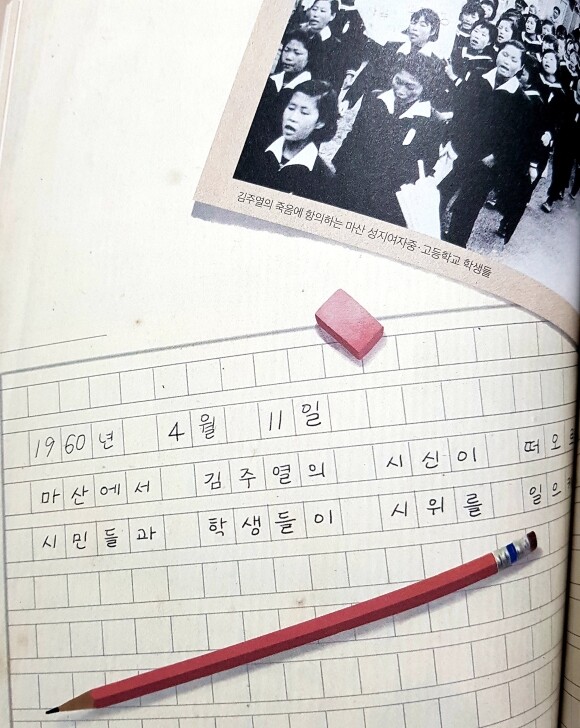 김주열의 죽음에 항의하는 마산 성지여자중·고등학교 학생들
1960년 4월 11일
마산에서 김주열의 시신이
시민들과 학생들이 시위를